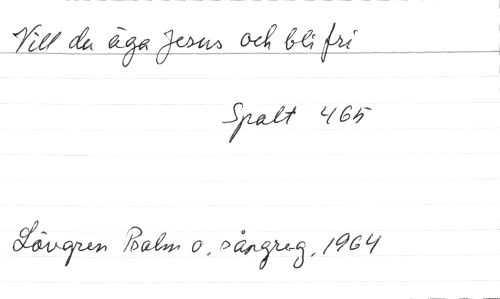 Vill du äga Jesus och bli fri
Spalt 465
Lövgren Psalm o. sångreg. 1964